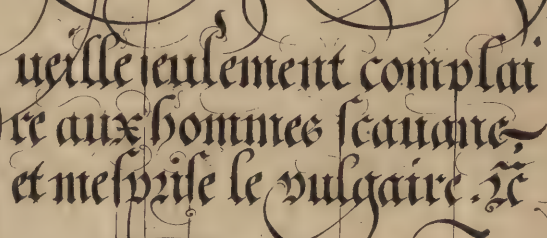 ueille seulement complai
re aux hommes scauans,
et mesprise le vulgaire. &c